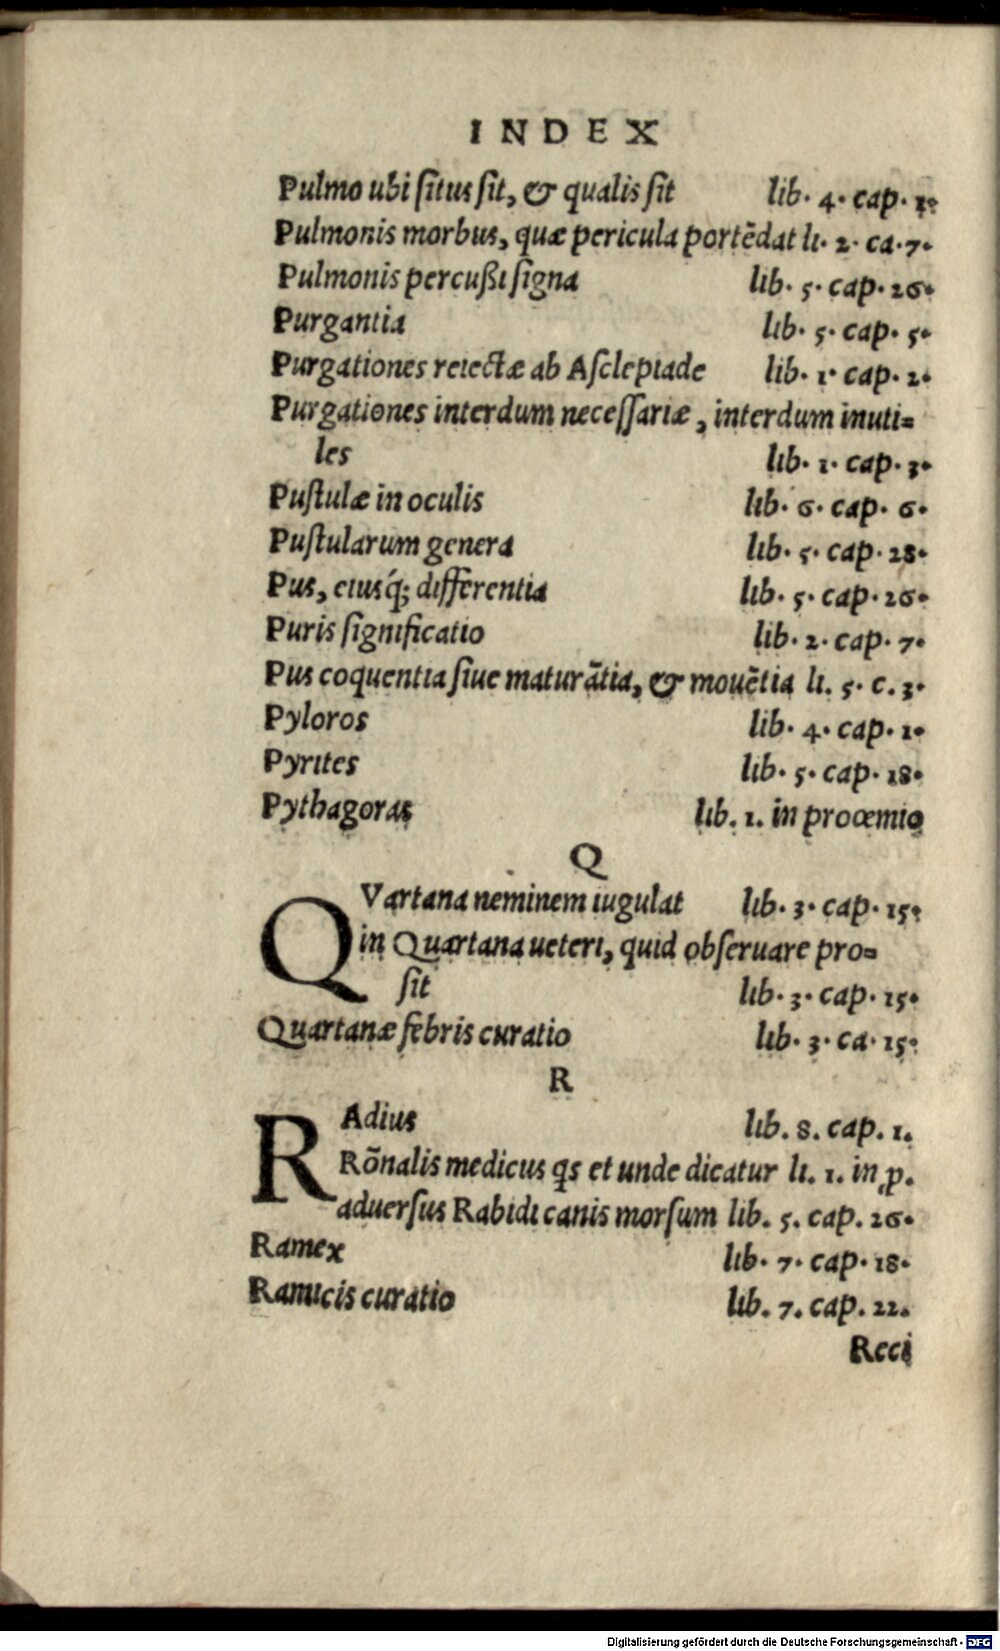 INDEX
Pulmo ubi ſitus ſit, & qualis ſit lib. 4. cap. 1.
Pulmonis morbus, quæ pericula portẽdat li. 2. ca. 7.
Pulmonis percußi ſigna lib. 5. cap. 26.
Purgantia lib. 5. cap. 5.
Purgationes reiectæ ab Aſclepiade lib. 1. cap. 2.
Purgationes interdum neceſſariæ, interdum inuti=
les lib. 1. cap. 3.
Puſtulæ in oculis lib. 6. cap. 6.
Puſtularum genera lib. 5. cap. 28.
Pus, eiusq́; differentia lib. 5. cap. 26.
Puris ſignificatio lib. 2. cap. 7.
Pus coquentia ſiue maturãtia, & mouẽtia li. 5. c. 3.
Pyloros lib. 4. cap. 1.
Pyrites lib. 5. cap. 18.
Pythagoras lib. 1. in proœmio
Q
QVartana neminem iugulat lib. 3. cap. 15.
in Quartana ueteri, quid obſeruare pro=
ſit lib. 3. cap. 15.
Quartanæ febris curatio lib. 3. ca. 15.
R
RAdius lib. 8. cap. 1.
Rõnalis medicus qs et unde dicatur li. 1. in ꝓ.
aduerſus Rabidi canis morſum lib. 5. cap. 26.
Ramex lib. 7. cap. 18.
Ramicis curatio lib. 7. cap. 22.
Reci
Digitalisierung gefördert durch die Deutsche Forschungsgemeinschaft - DFG